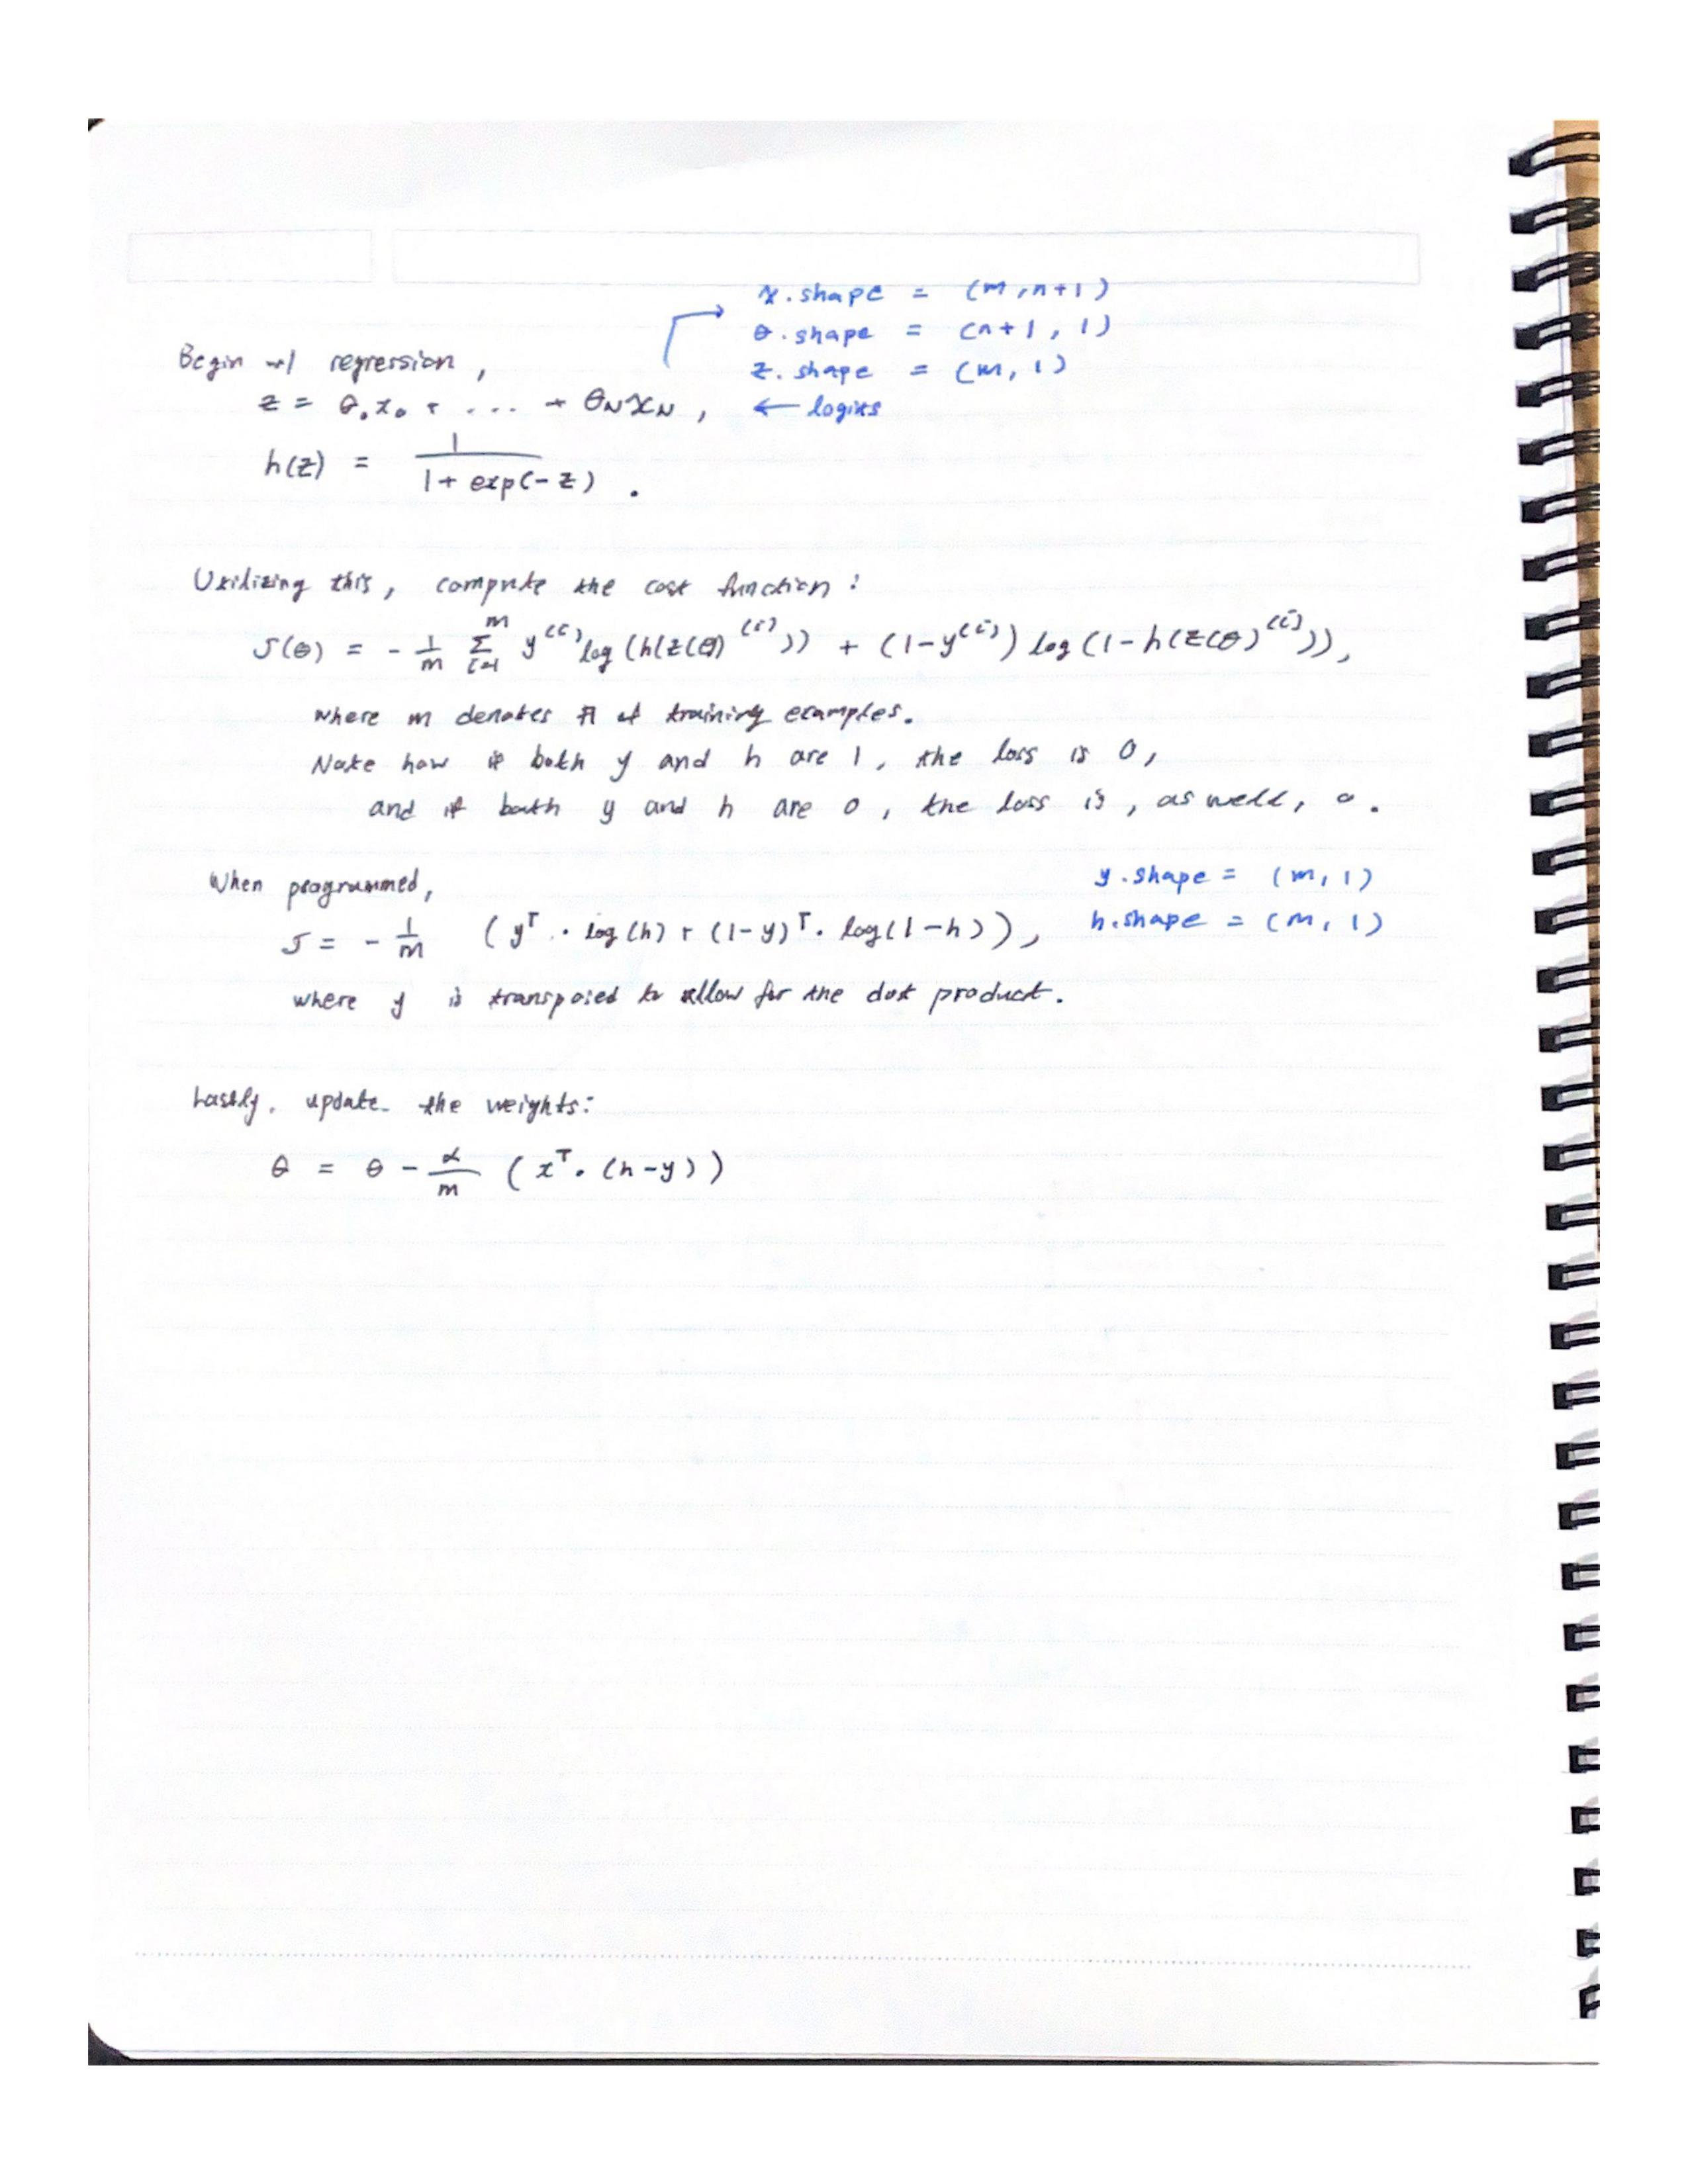 x.shape = (m, n+1)
θ.shape = (n+1, 1)
Begin w/ regression,
z.shape = (m, 1)
z = θ₀x₀ + ... + θ_N x_N, ← logits
h(z) = 1 / (1 + exp(-z)).
Utilizing this, compute the cost function:
J(θ) = - 1/m Σ_{i=1}^{m} y^(i) log(h(z(θ)^(i))) + (1-y^(i)) log(1-h(z(θ)^(i))),
where m denotes # of training examples.
Note how if both y and h are 1, the loss is 0,
and if both y and h are 0, the loss is, as well, 0.
When programmed,
y.shape = (m, 1)
J = - 1/m (y^T · log(h) + (1-y)^T · log(1-h)),
h.shape = (m, 1)
where y is transposed to allow for the dot product.
Lastly, update the weights:
θ = θ - α/m (x^T · (h-y))